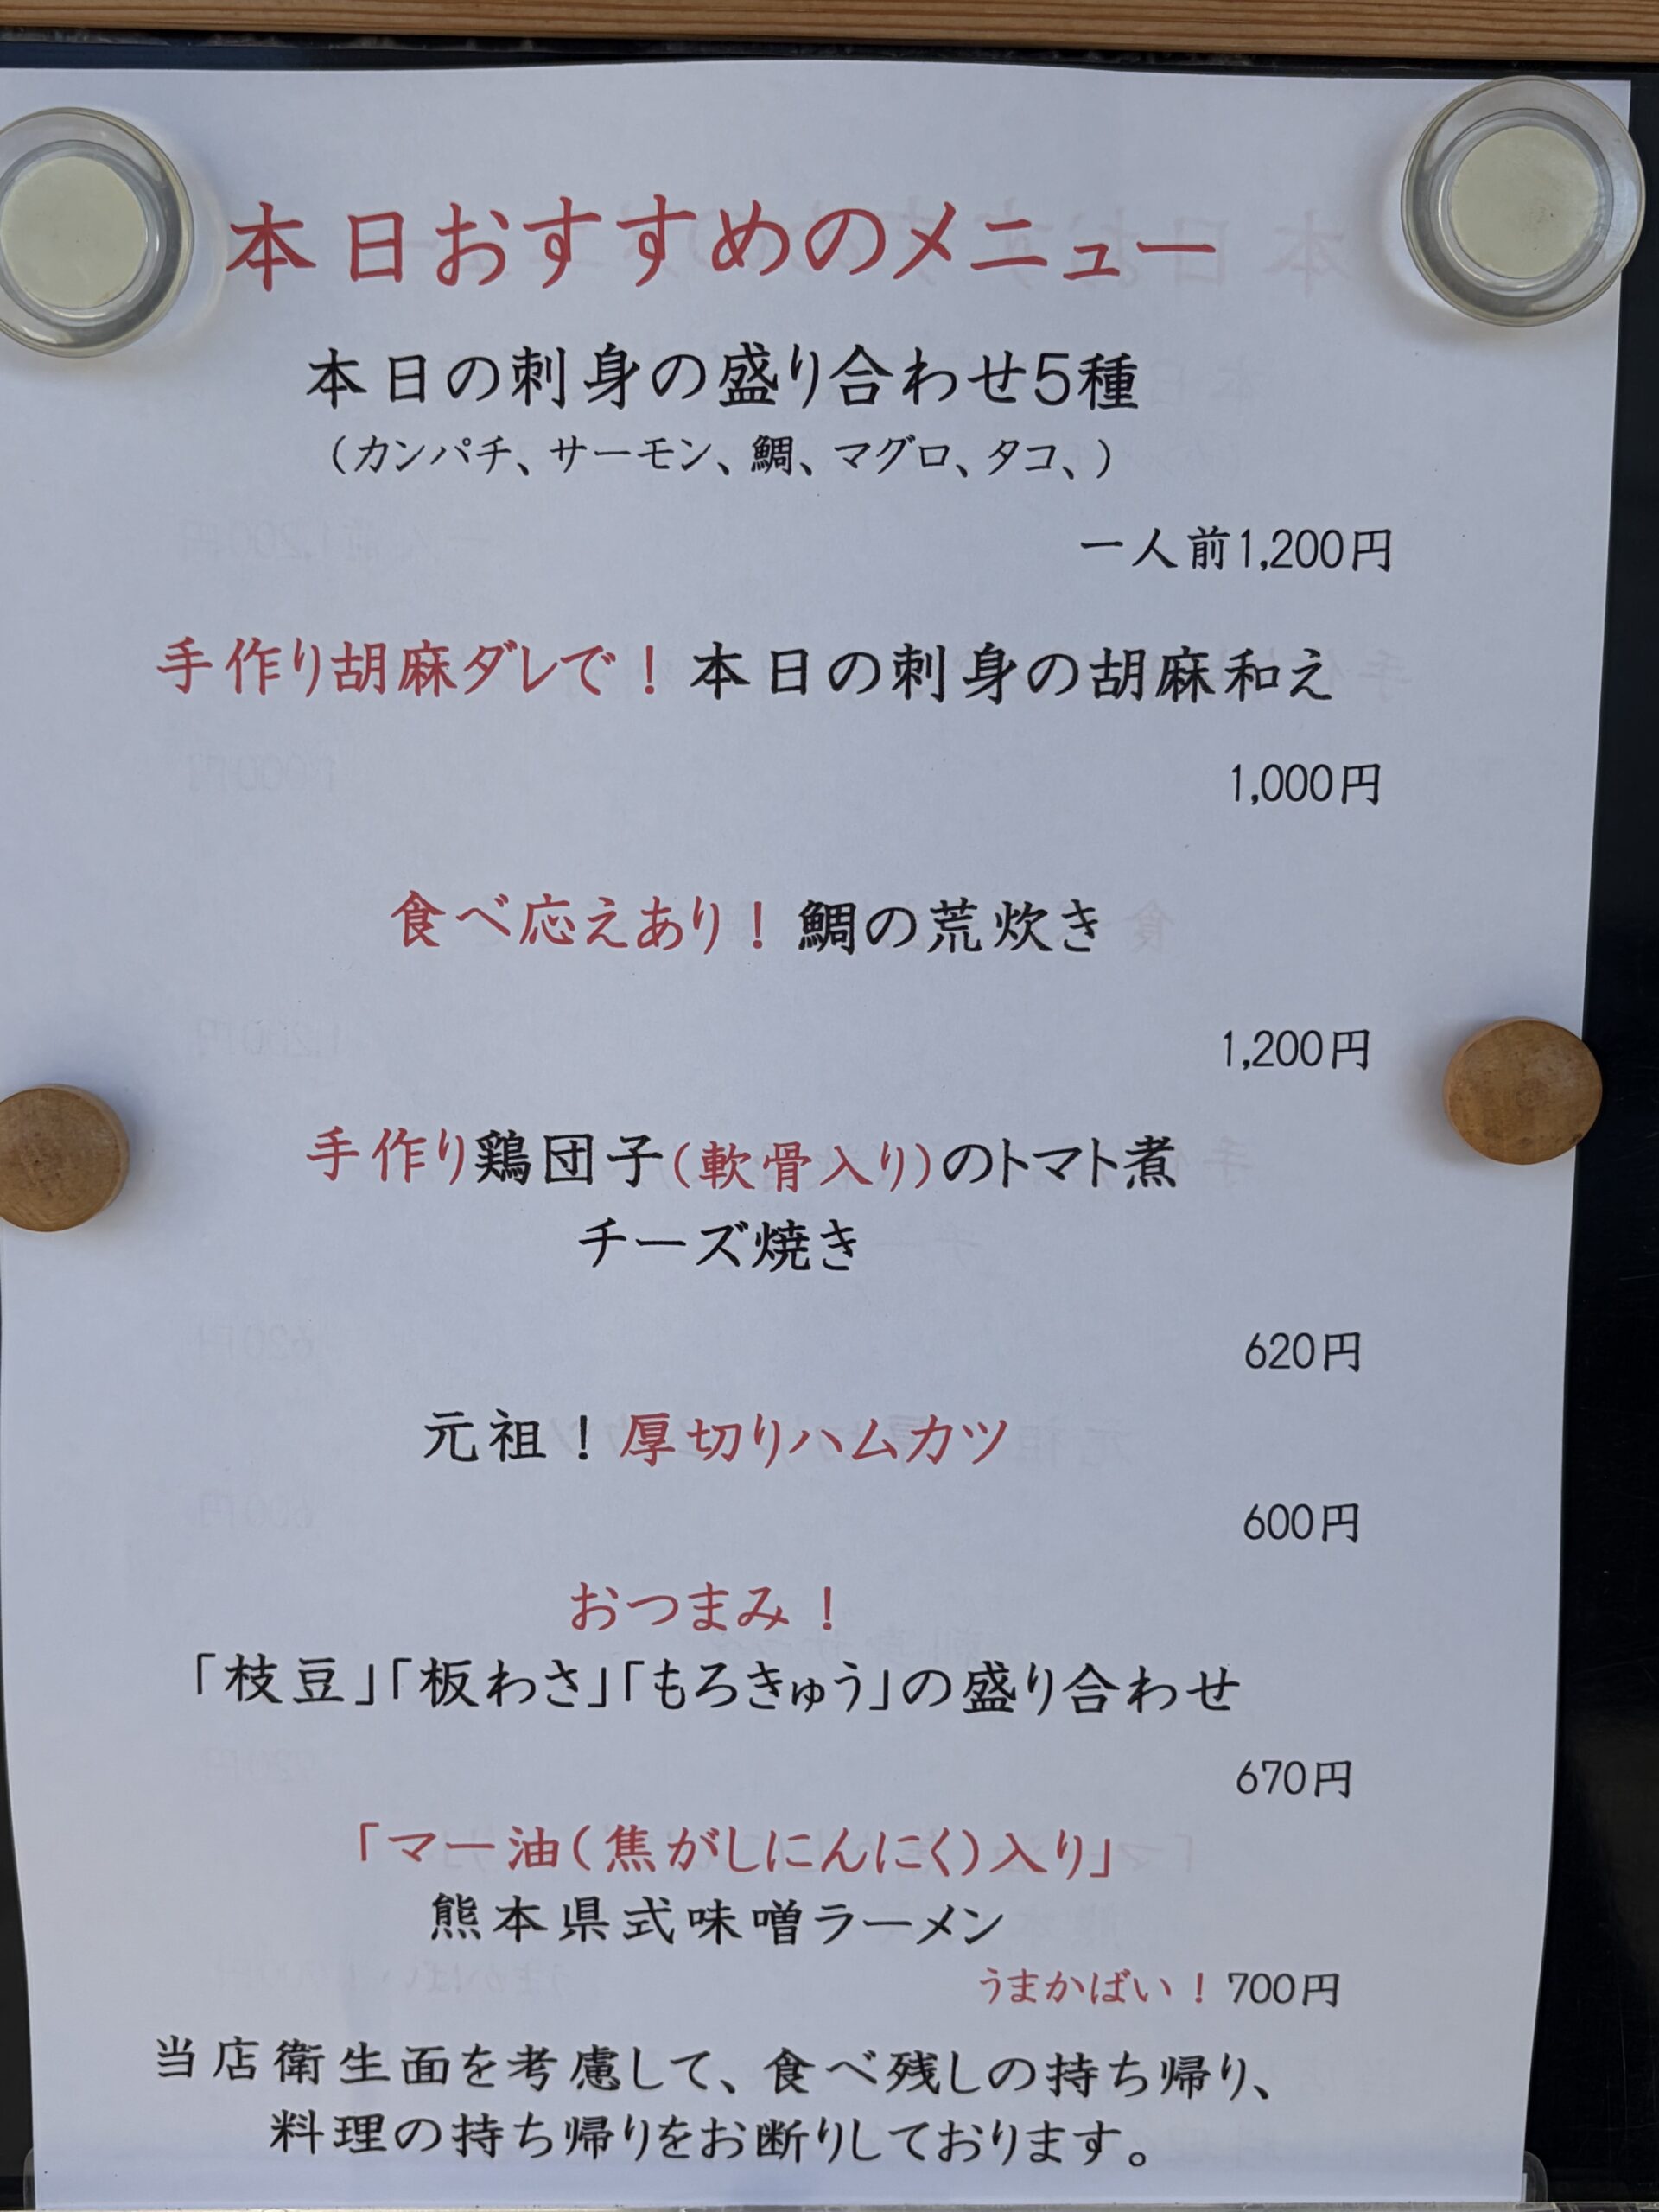 本日おすすめのメニュー
本日の刺身の盛り合わせ5種
（カンパチ、サーモン、鯛、マグロ、タコ、）
一人前1,200円
手作り胡麻ダレで！本日の刺身の胡麻和え
1,000円
食べ応えあり！鯛の荒炊き
1,200円
手作り鶏団子（軟骨入り）のトマト煮
チーズ焼き
620円
元祖！厚切りハムカツ
600円
おつまみ！
「枝豆」「板わさ」「もろきゅう」の盛り合わせ
670円
「マー油（焦がしにんにく）入り」
熊本県式味噌ラーメン
うまかばい！700円
当店衛生面を考慮して、食べ残しの持ち帰り、
料理の持ち帰りをお断りしております。